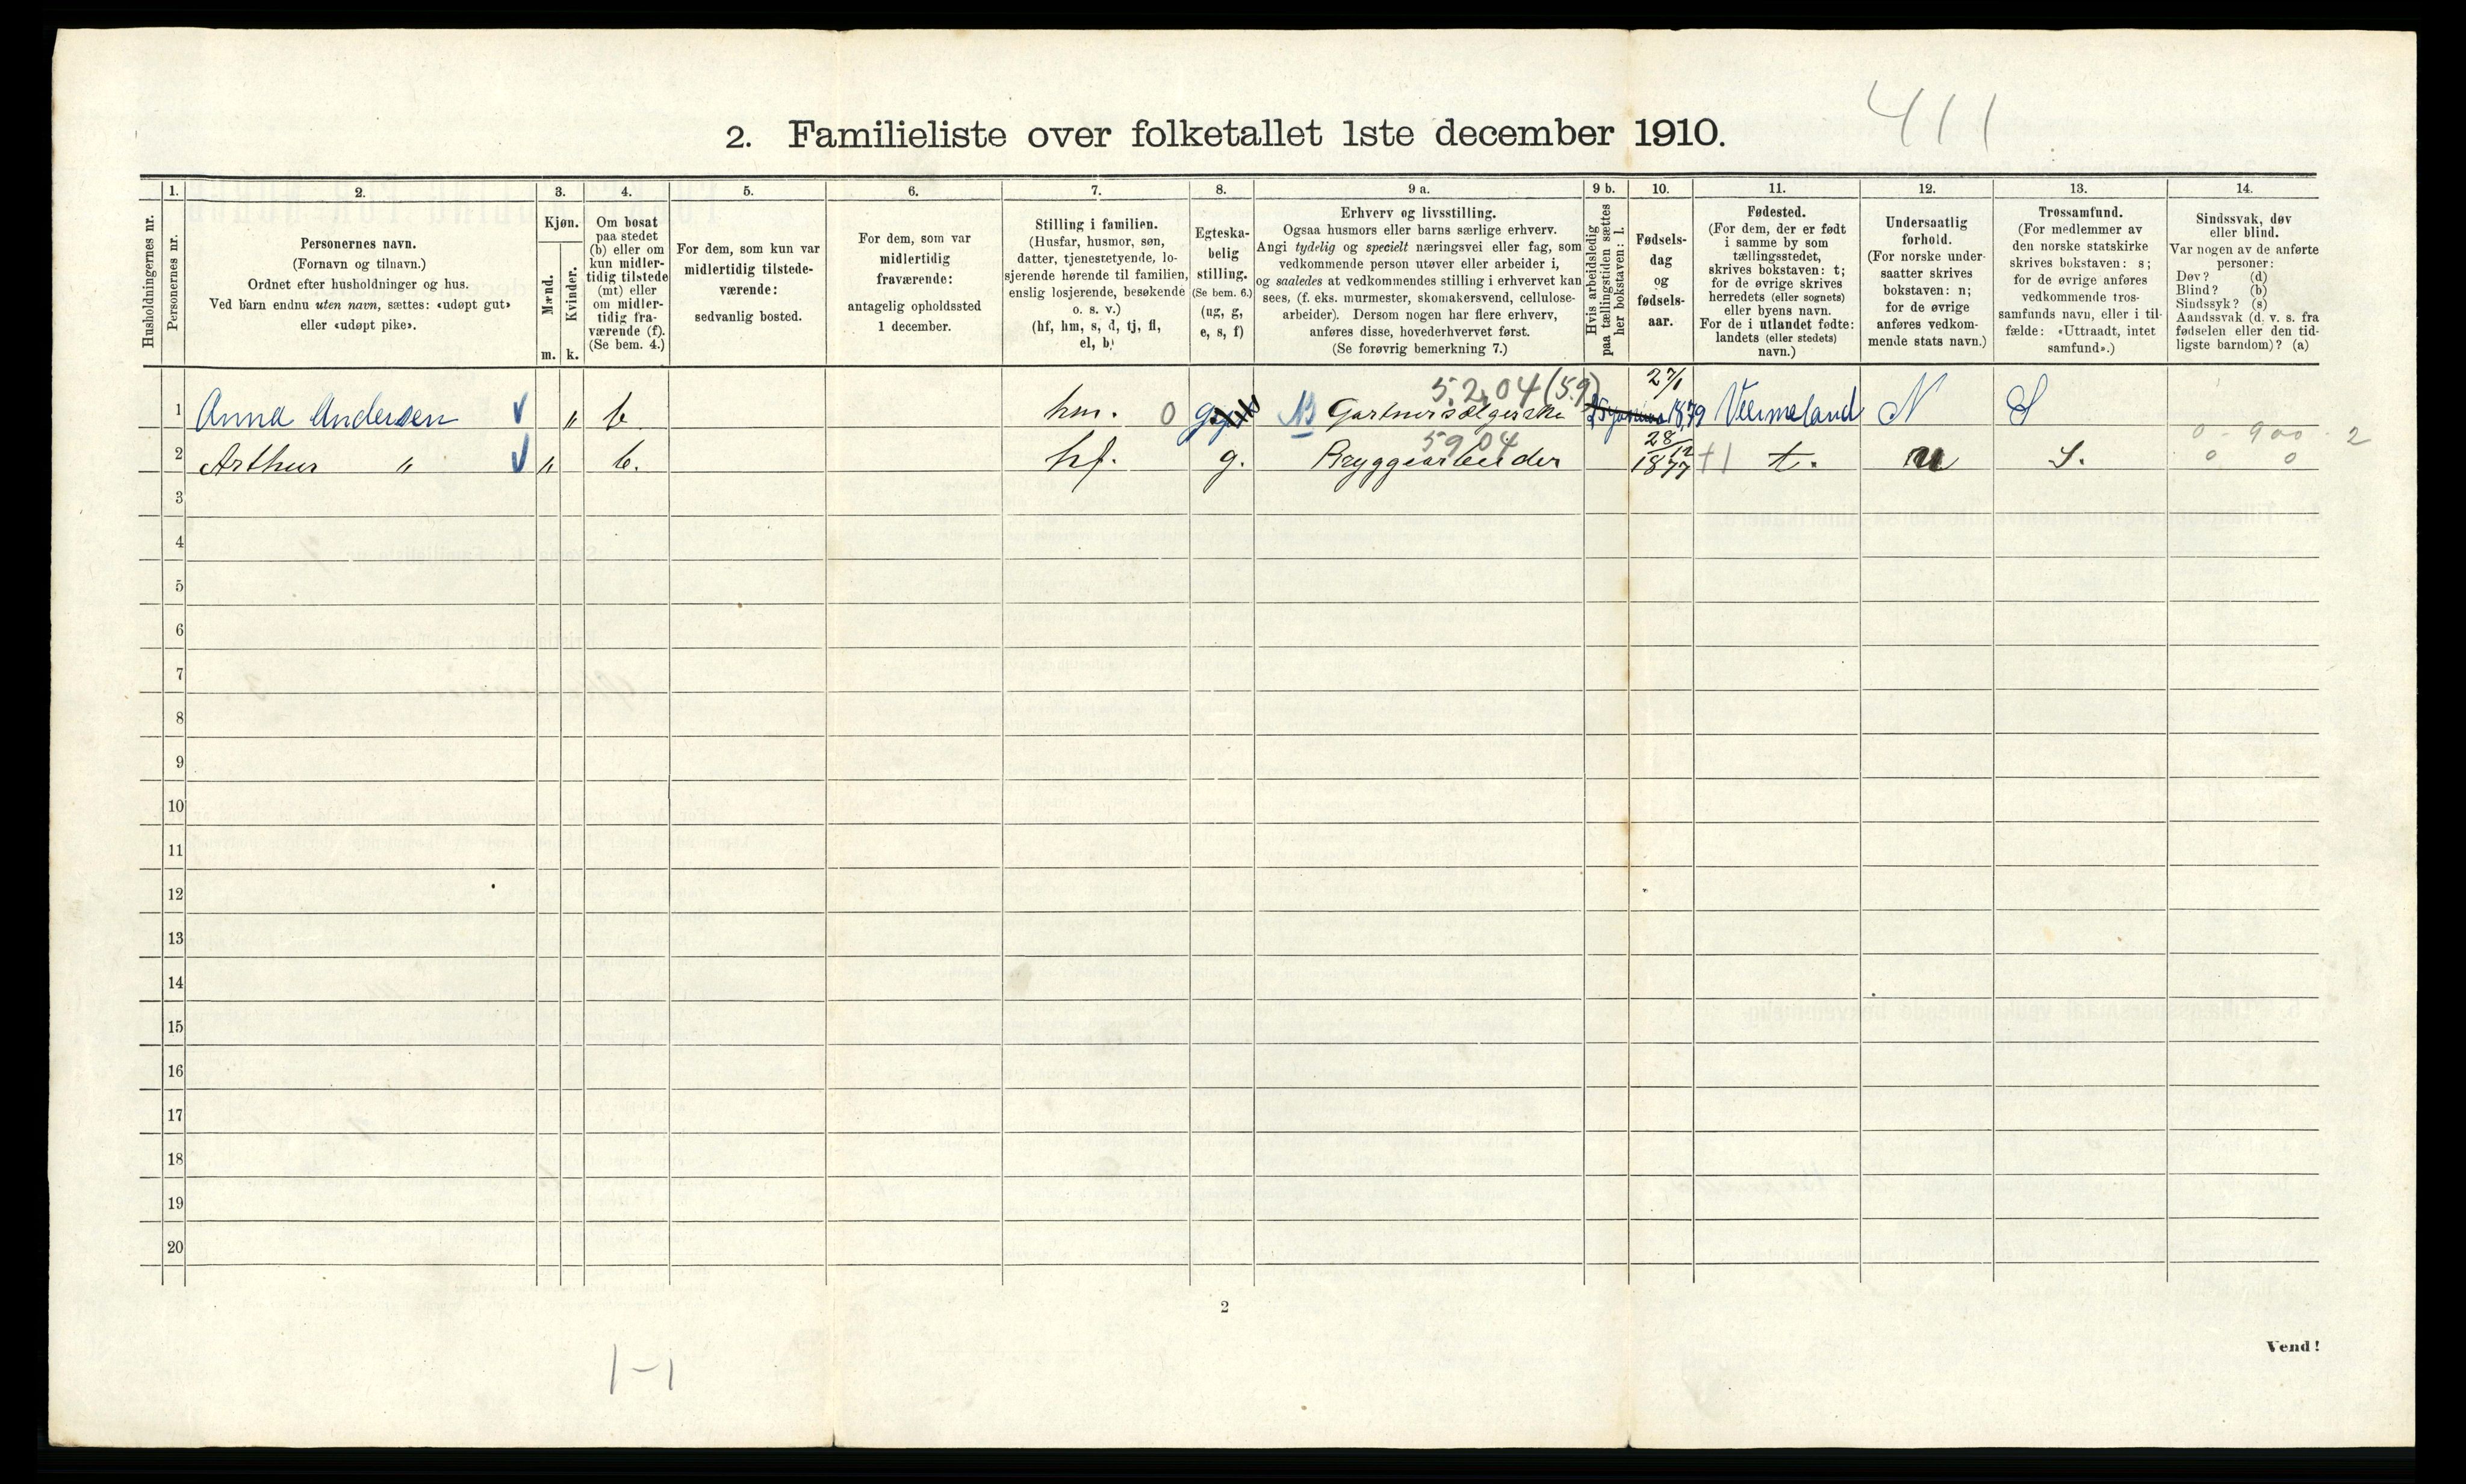 411
2. Familieliste over folketallet 1ste december 1910.
Husholdningernes nr.
1.
Personernes nr.
2.
Personernes navn.
(Fornavn og tilnavn.)
Ordnet efter husholdninger og hus.
Ved barn endnu uten navn, sættes: «udøpt gut»
eller «udøpt pike».
3.
Kjøn.
Mænd.
Kvinder.
m. k.
4.
Om bosat
paa stedet
(b) eller om
kun midler-
tidig tilstede
(mt) eller
om midler-
tidig fra-
værende (f).
(Se bem. 4.)
5.
For dem, som kun var
midlertidig tilstede-
værende:
sedvanlig bosted.
6.
For dem, som var
midlertidig
fraværende:
antagelig opholdssted
1 december.
7.
Stilling i familien.
(Husfar, husmor, søn,
datter, tjenestetyende, lo-
sjerende hørende til familien,
enslig losjerende, besøkende
o. s. v.)
(hf, hm, s, d, tj, fl,
el, b)
8.
Egteska-
belig
stilling.
(Se bem. 6.)
(ug, g,
e, s, f)
9 a.
Erhverv og livsstilling.
Ogsaa husmors eller barns særlige erhverv.
Angi tydelig og specielt næringsvei eller fag, som
vedkommende person utøver eller arbeider i,
og saaledes at vedkommendes stilling i erhvervet kan
sees, (f. eks. murmester, skomakersvend, cellulose-
arbeider). Dersom nogen har flere erhverv,
anføres disse, hovederhvervet først.
(Se forøvrig bemerkning 7.)
9 b.
Hvis arbeidsledig
paa tællingstiden sættes
her bokstaven: l.
10.
Fødsels-
dag
og
fødsels-
aar.
11.
Fødested.
(For dem, der er født
i samme by som
tællingsstedet,
skrives bokstaven: t;
for de øvrige skrives
herredets (eller sognets)
eller byens navn.
For de i utlandet fødte:
landets (eller stedets)
navn.)
12.
Undersaatlig
forhold.
(For norske under-
saatter skrives
bokstaven: n;
for de øvrige
anføres vedkom-
mende stats navn.)
13.
Trossamfund.
(For medlemmer av
den norske statskirke
skrives bokstaven: s;
for de øvrige anføres
vedkommende tros-
samfunds navn, eller i til-
fælde: «Uttraadt, intet
samfund».)
14.
Sindssvak, døv
eller blind.
Var nogen av de anførte
personer:
Døv? (d)
Blind? (b)
Sindssyk? (s)
Aandssvak (d. v. s. fra
fødselen eller den tid-
ligste barndom)? (a)
5.2,04 (5.9) 27/1
1 Anna Andersen " b hm. 0 g Gartnersælgerske 1879 Veermeland N S
5904 28/12 0 - 900 - 2
2 Arthur " " b. hf. g. Bryggearbeider 1877 t. n S. 0 0
3
4
5
6
7
8
9
10
11
12
13
14
15
16
17
18
19
20
2
Vend!
1-1